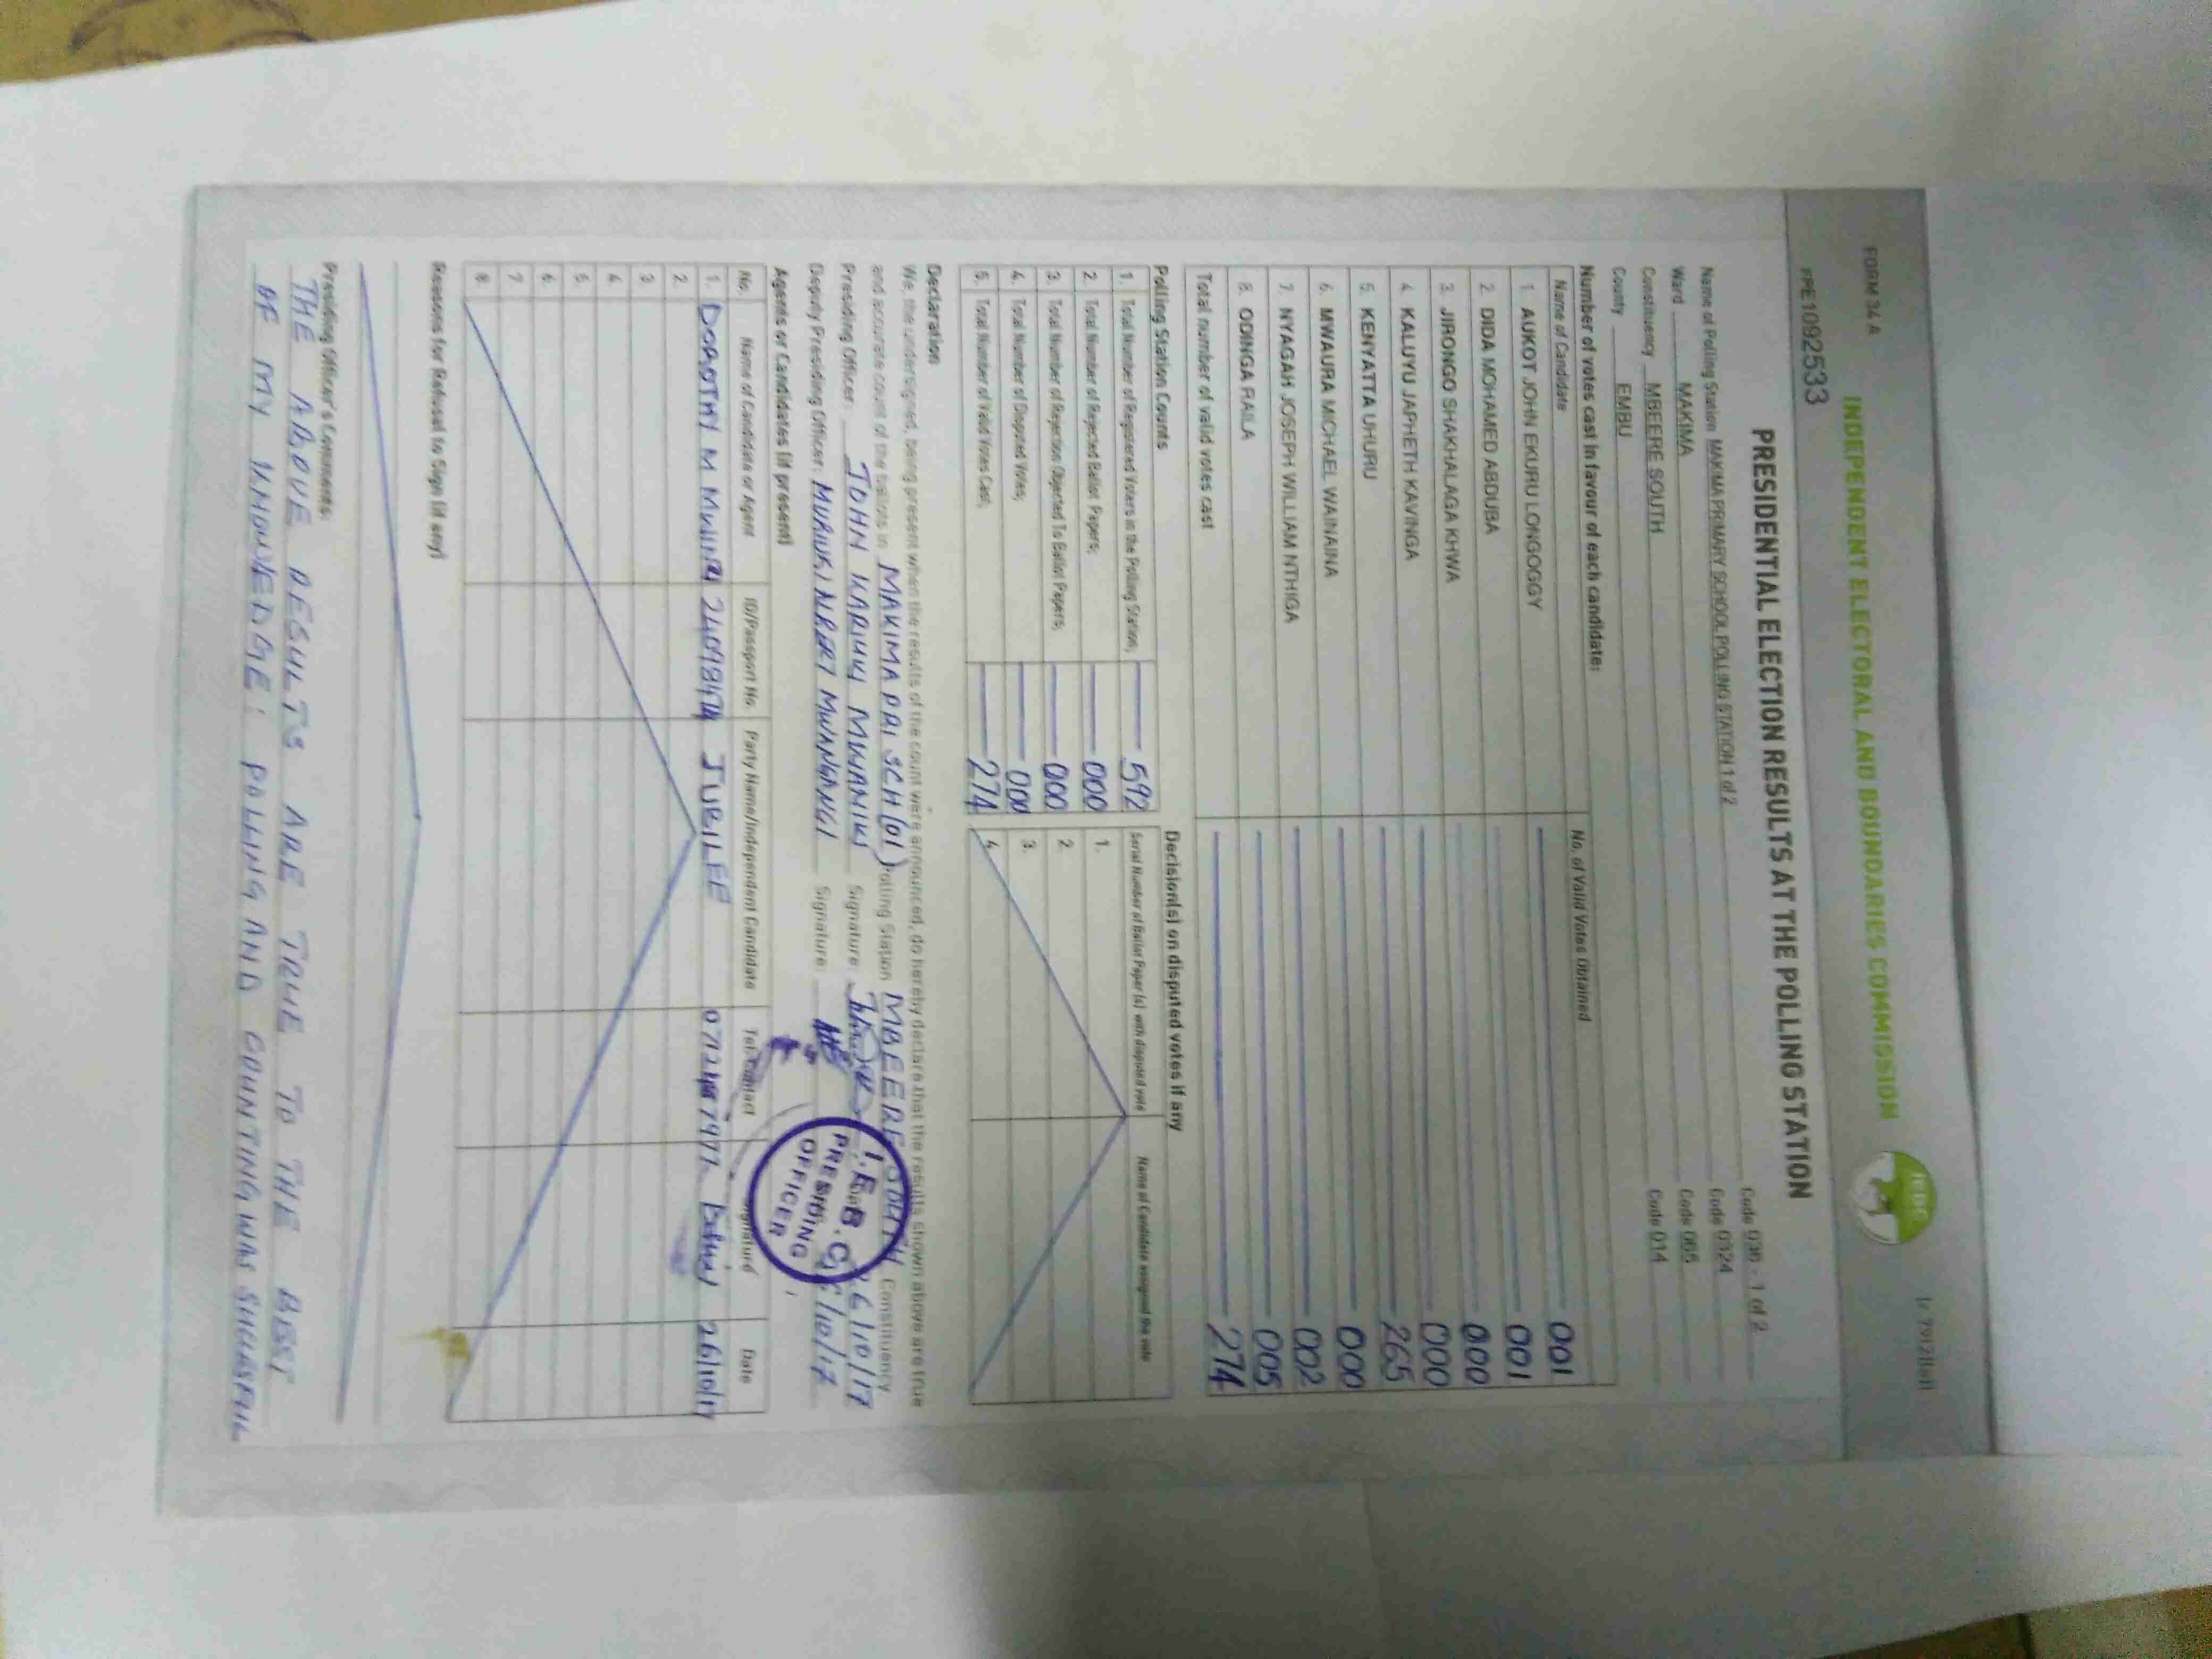 FORM 34 A
INDEPENDENT ELECTORAL AND BOUNDARIES COMMISSION
IEBC
PPE1092533
PRESIDENTIAL ELECTION RESULTS AT THE POLLING STATION
Name of Polling Station MAKIMA PRIMARY SCHOOL POLLING STATION 1 of 2 Code 036 - 1 of 2
Ward MAKIMA Code 0324
Constituency MBEERE SOUTH Code 065
County EMBU Code 014
Number of votes cast in favour of each candidate:
Name of Candidate No. of Valid Votes Obtained
1. AUKOT JOHN EKURU LONGOGGY 001
2. DIDA MOHAMED ABDUBA 001
3. JIRONGO SHAKHALAGA KHWA 000
4. KALUYU JAPHETH KAVINGA 000
5. KENYATTA UHURU 265
6. MWAURA MICHAEL WAINAINA 000
7. NYAGAH JOSEPH WILLIAM NTHIGA 002
8. ODINGA RAILA 005
Total number of valid votes cast 274
Polling Station Counts
1. Total Number of Registered Voters in the Polling Station; 592
2. Total Number of Rejected Ballot Papers; 000
3. Total Number of Rejection Objected To Ballot Papers; 000
4. Total Number of Disputed Votes; 000
5. Total Number of Valid Votes Cast; 274
Decision(s) on disputed votes if any
Serial Number of Ballot Paper (s) with disputed vote Name of Candidate assigned the vote
1.
2.
3.
4.
Declaration
We, the undersigned, being present when the results of the count were announced, do hereby declare that the results shown above are true
and accurate count of the ballots in MAKIMA PRI SCH (01) Polling Station MBEERE SOUTH Constituency
Presiding Officer: JOHN KARIUKI MWANIKI Signature: 26/10/17
Deputy Presiding Officer: MURIUKI ALBERT MWANGANGI Signature: 26/10/17
I.E.B.C
PRESIDING
OFFICER
Agents or Candidates (if present)
No. Name of Candidate or Agent ID/Passport No. Party Name/Independent Candidate Tel. Contact Signature Date
1. DOROTHY M MWINZI JUBILEE 26/10/17
2.
3
4
5
6.
7
8.
Reasons for Refusal to Sign (if any)
Presiding Officer's Comments:
THE ABOVE RESULTS ARE TRUE TO THE BEST
OF MY KNOWLEDGE: POLLING AND COUNTING WAS SUCCESSFUL